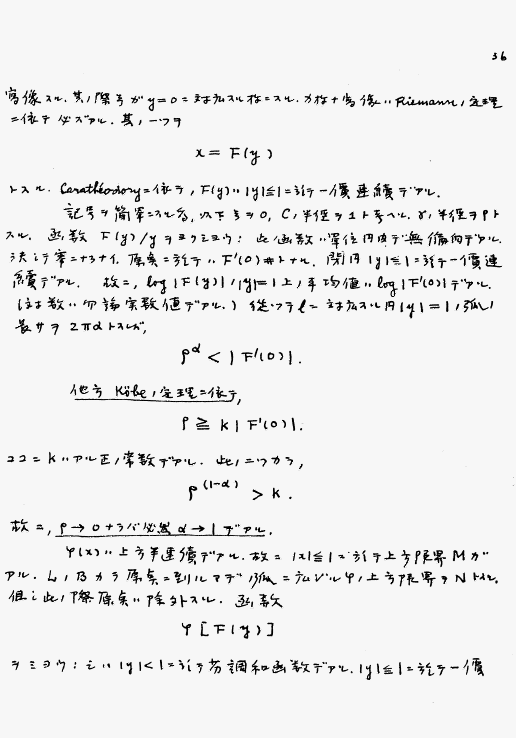 36
写像スル. 其ノ際ξガ y=0 ニ対応スル様ニスル. カ様ナ写像ハ Riemann ノ定理
ニ依テ必ズアル. 其ノ一ツヲ
x = F(y)
トスル. Carathéodory ニ依テ, F(y) ハ |y|≦1 ニ於テ一價連續デアル.
記号ヲ簡単ニスル為, 以下 ξ=0, C ノ半径ヲ 1 ト考ヘル. γ ノ半径ヲ ρ ト
スル. 函数 F(y)/y ヲミヨウ: 此函数ハ單位円内デ
決シテ零ニナラナイ. 原点ニ於テハ F'(0) ≠ トナル. 閉円 |y|≦1 ニ於テ一價連
續デアル. 故ニ, log|F(y)| ノ |y|=1 上ノ平均値ハ log|F'(0)| デアル.
(対数ハ勿論実数値デアル.) 従ツテ l ニ対応スル円 |y|=1 ノ弧ノ
長サヲ 2πα トスレバ,
ρ^α < |F'(0)|.
他方 Köbe ノ定理ニ依テ,
ρ ≧ k |F'(0)|.
ココニ k ハアル正ノ常数デアル. 此ノ二ツカラ,
ρ^(1-α) > k.
故ニ, ρ→0 ナラバ必然 α→1 デアル.
φ(x) ハ上方半連續デアル. 故ニ |x|≦1 ニ於テ上方限界 M ガ
アル. L ノ B カラ原点ニ到ルマデノ弧ニ於ケル φ ノ上方限界ヲ N トスル.
但シ此ノ際原点ハ除外スル. 函数
φ[F(y)]
ヲミヨウ: 之ハ |y|<1 ニ於テ劣調和函数デアル. |y|≦1 ニ於テ一價